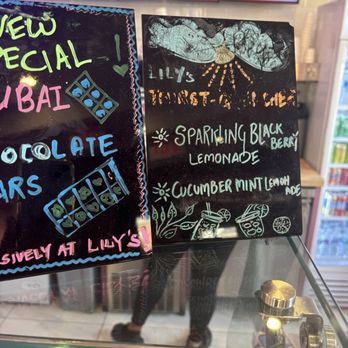 NEW
SPECIAL
DUBAI
CHOCOLATE
BARS
EXCLUSIVELY AT LILY'S!
LILY's
THIRST-QUENCHER
SPARKLING BLACK BERRY
LEMONADE
CUCUMBER MINT LEMON ADE